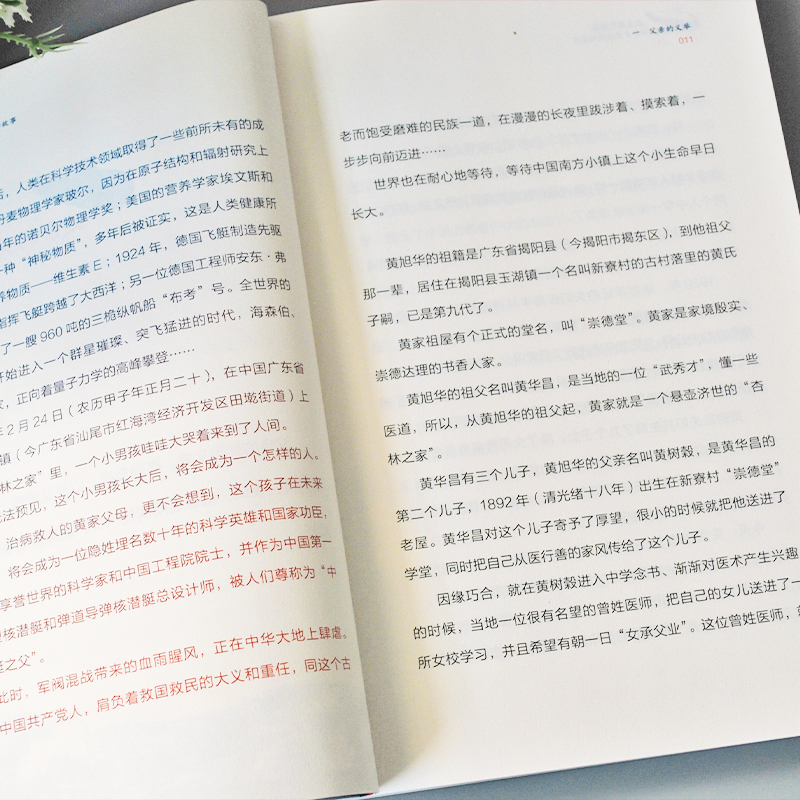 故事
后，人类在科学技术领域取得了一些前所未有的成
丹麦物理学家玻尔，因为在原子结构和辐射研究上
年的诺贝尔物理学奖；美国的营养学家埃文斯和
一种“神秘物质”，多年后被证实，这是人类健康所
养物质——维生素E；1924年，德国飞艇制造先驱
指挥飞艇跨越了大西洋；另一位德国工程师安东·弗
了一艘960吨的三桅纵帆船“布考”号。全世界的
开始进入一个群星璀璨、突飞猛进的时代，海森伯、
家，正向着量子力学的高峰攀登……
年2月24日（农历甲子年正月二十），在中国广东省
镇（今广东省汕尾市红海湾经济开发区田墘街道）上
林之家”里，一个小男孩哇哇大哭着来到了人间。
无法预见，这个小男孩长大后，将会成为一个怎样的人。
治病救人的黄家父母，更不会想到，这个孩子在未来
将会成为一位隐姓埋名数十年的科学英雄和国家功臣，
享誉世界的科学家和中国工程院院士，并作为中国第一
核潜艇和弹道导弹核潜艇总设计师，被人们尊称为“中
艇之父”。
此时，军阀混战带来的血雨腥风，正在中华大地上肆虐。
中国共产党人，肩负着救国救民的大义和重任，同这个古
一 父亲的义举
011
老而饱受磨难的民族一道，在漫漫的长夜里跋涉着、摸索着，一
步步向前迈进……
世界也在耐心地等待，等待中国南方小镇上这个小生命早日
长大。
黄旭华的祖籍是广东省揭阳县（今揭阳市揭东区），到他祖父
那一辈，居住在揭阳县玉湖镇一个名叫新寮村的古村落里的黄氏
子嗣，已是第九代了。
黄家祖屋有个正式的堂名，叫“崇德堂”。黄家是家境殷实、
崇德达理的书香人家。
黄旭华的祖父名叫黄华昌，是当地的一位“武秀才”，懂一些
医道，所以，从黄旭华的祖父起，黄家就是一个悬壶济世的“杏
林之家”。
黄华昌有三个儿子，黄旭华的父亲名叫黄树榖，是黄华昌的
第二个儿子，1892年（清光绪十八年）出生在新寮村“崇德堂”
老屋。黄华昌对这个儿子寄予了厚望，很小的时候就把他送进了
学堂，同时把自己从医行善的家风传给了这个儿子。
因缘巧合，就在黄树榖进入中学念书、渐渐对医术产生兴趣
的时候，当地一位很有名望的曾姓医师，把自己的女儿送进了一
所女校学习，并且希望有朝一日“女承父业”。这位曾姓医师，